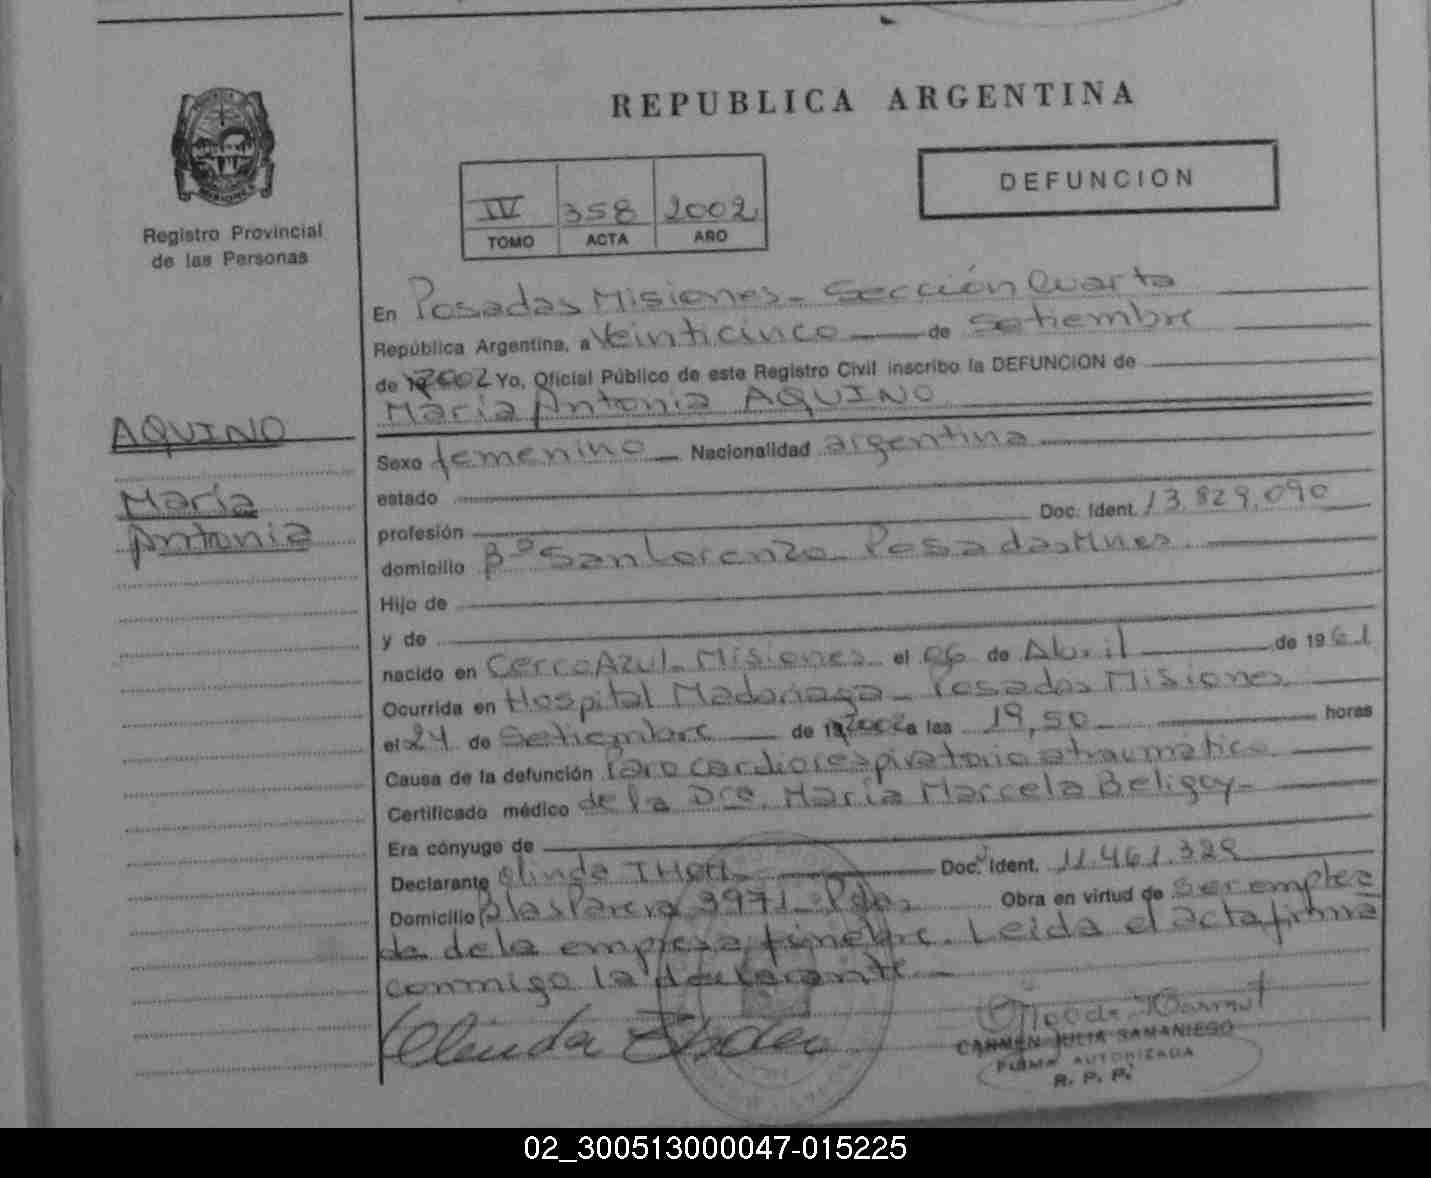 REPUBLICA ARGENTINA
DEFUNCION
IV 358 2002
TOMO ACTA AÑO
Registro Provincial
de las Personas
En Posadas Misiones - Sección Cuarta
República Argentina, a Veinticinco de Setiembre
de 2002 Yo, Oficial Público de este Registro Civil inscribo la DEFUNCION de
María Antonia AQUINO
AQUINO
María
Antonia
Sexo femenino Nacionalidad argentina
estado
profesión Doc. Ident. 13.829.090
domicilio Bº San Lorenzo - Posadas Mnes
Hijo de
y de
nacido en Cerro Azul - Misiones el 06 de Abril de 1961
Ocurrida en Hospital Madariaga - Posadas Misiones
el 24 de Setiembre de 2002 a las 19,50 horas
Causa de la defunción Paro cardiorespiratorio atraumático
Certificado médico de la Dra. María Marcela
Era cónyuge de
Declarante Olinda Doc. Ident. 11.461.329
Domicilio Blas Parera 3971 - Pdas Obra en virtud de ser emplea
da de la empresa fúnebre. Leida el acta firma
conmigo la declarante -
Olinda
CARMEN JULIA SAMANIEGO
FIRMA AUTORIZADA
R. P. P.
02_300513000047-015225